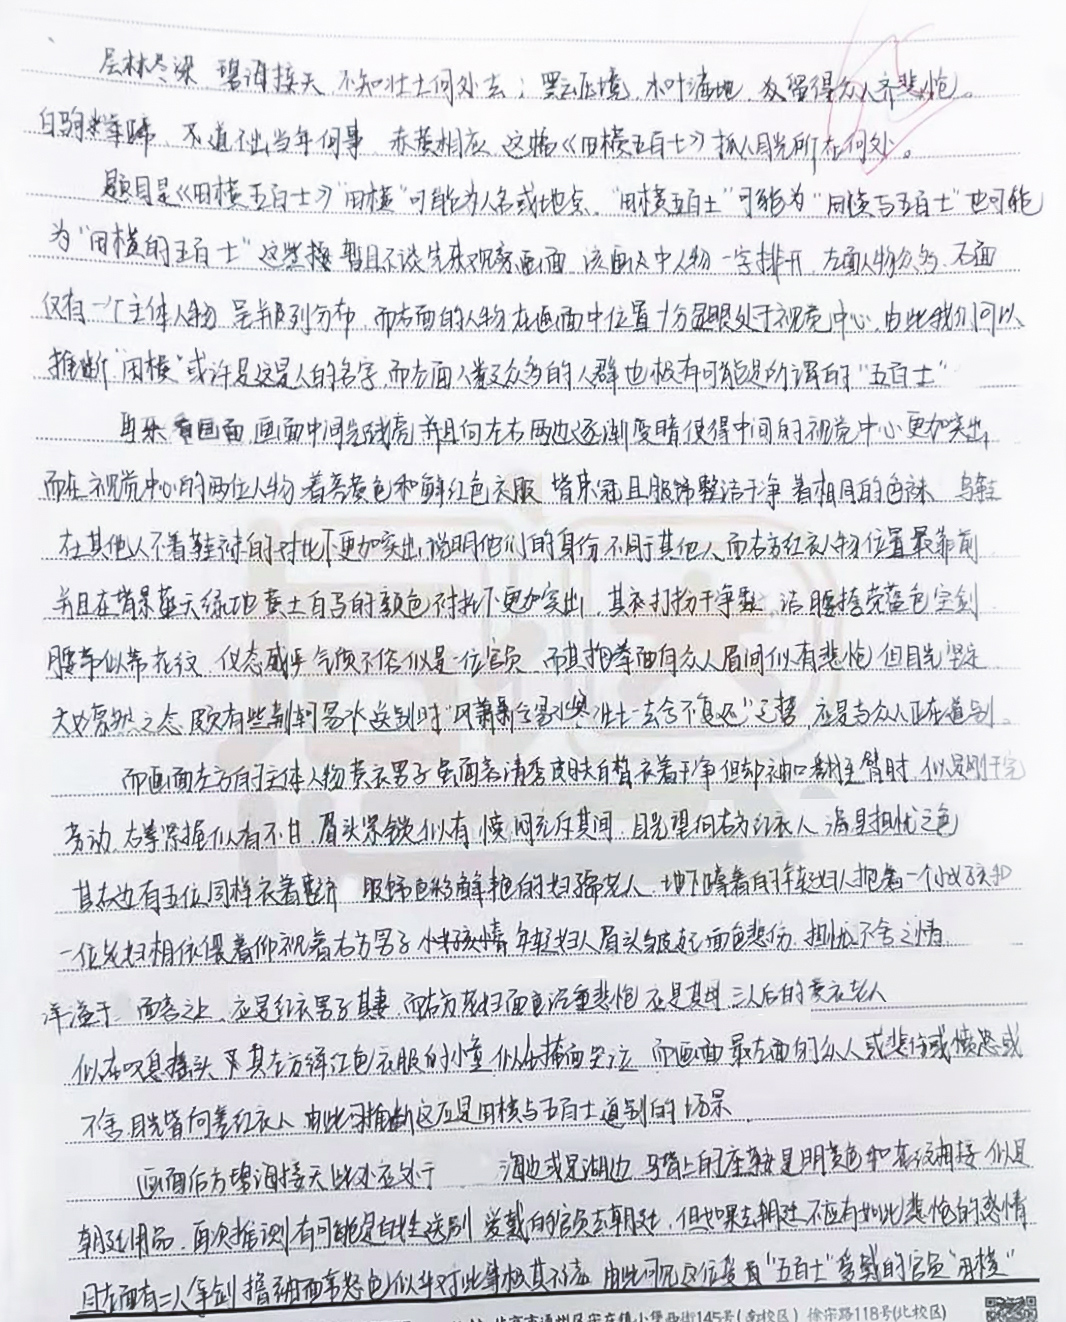 层林尽染 碧海接天 不知壮士何处去；黑云压境，木叶满地，效留得众人齐悲怆。
白驹举蹄、又道不出当年何事 赤黄相应 这幅《田横五百士》抓人目光所在何处。
题目是《田横五百士》"田横"可能为人名或地点，"田横五百士"可能为"田横与五百士"也可能
为"田横的五百士"这些 暂且不谈先来观察画面 该画中人物一字排开 左面人物众多 右面
仅有一个主体人物 呈并列分布 而右面的人物在画面中位置十分显眼处于视觉中心 由此我们可以
推断"田横"或许是这是人的名字 而左面人数众多的人群也极有可能是所谓的"五百士"
再来看画面 画面中间光线亮并且向左右两边逐渐变暗使得中间的视觉中心更加突出
而在视觉中心的两位人物着亮黄色和鲜红色衣服 皆束冠且服饰整洁干净 着相同的白袜 乌鞋
在其他人不着鞋袜的对比下更加突出 说明他们的身份不同于其他人 而右方红衣人物位置最靠前
并且在背景蓝天绿地黄土白马的颜色衬托下更加突出，其衣打扮干净整洁 腰挎亮蓝色宝剑
腰带似带花纹 仪态威严气质不俗似是一位官员 而其抱拳面向众人眉间似有悲怆但目光坚定
大义凛然之态 颇有些荆轲易水送别时"风萧萧兮易水寒 壮士一去兮不复返"之势 应是与众人正在道别。
而画面左方的主体人物黄衣男子虽面容清秀皮肤白皙衣着干净但却袖口 至臂肘 似是刚干完
劳动 右拳紧握似有不甘 眉头紧锁似有愤 充斥其间 目光望向右方红衣人 满是担忧之色
其右边有五位同样衣着 服饰色彩鲜艳的妇孺老人 地下蹲着的年轻妇人抱着一个小女孩和
一位老妇相依偎着仰视着右方男子 小女孩 年轻妇人眉头皱起面色悲伤 担忧不舍之情
洋溢于 面容之上 应是红衣男子其妻 而右方老妇面色沉重悲怆 应是其母 三人后的黄衣老人
似在叹息摇头 及其左方 红色衣服的小童似在掩面哭泣 而画面最左面的众人或悲伤或愤怒或
不舍 目光皆向着红衣人 由此可推断这应是田横与五百士道别的场景
画面后方碧海接天此处应处于 海边或是湖边 马背上的座鞍是明黄色和花纹相接 似是
朝廷用品，再次推测有可能是百姓送别 爱戴的官员去朝廷，但如果去朝廷不应有如此悲怆的感情
且左面有二人拿剑 面带怒色似乎对此事极其不满 由此可见这位受着"五百士"爱戴的官员"田横"
北京市通州区宋庄镇小堡西街145号(南校区) 徐宋路118号(北校区)